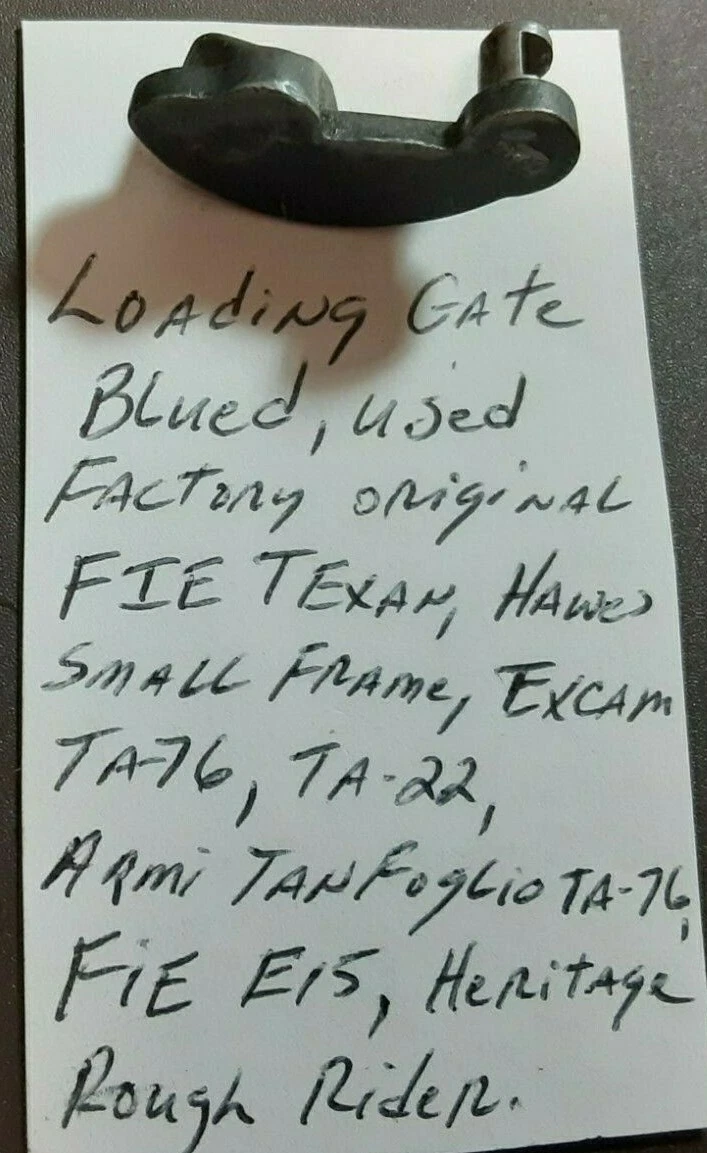 Loading Gate
Blued, used
Factory original
FIE TEXAN, Hawes
Small Frame, Excam
TA-76, TA-22,
Armi Tanfoglio TA-76,
FiE E15, Heritage
Rough Rider.